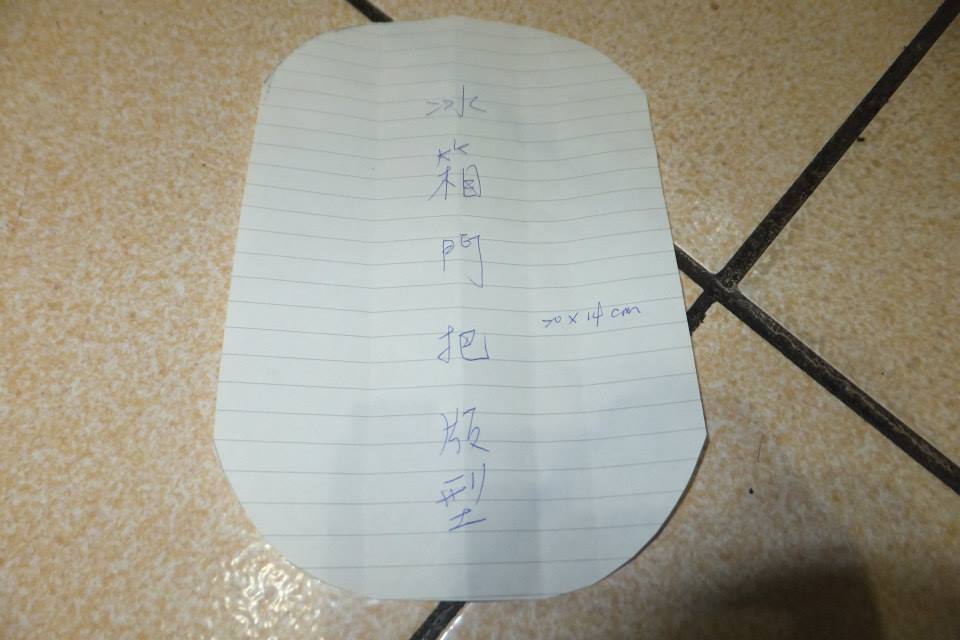 冰箱門把版型
20 x 14 cm